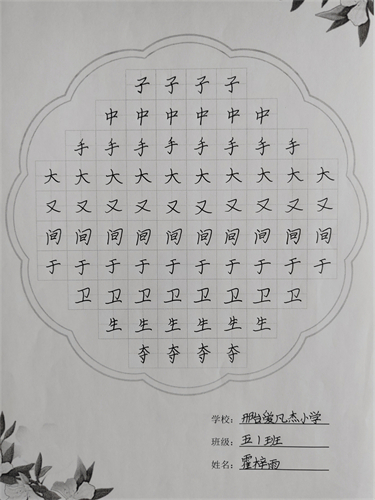 子子子子
中中中中中中
手手手手手手手手
大大大大大大大大大大
又又又又又又又又又又
间间间间间间间间间间
于于于于于于于于于于
卫卫卫卫卫卫卫卫
生生生生生生
夺夺夺夺
学校：邢台爱凡杰小学
班级：五1班
姓名：霍梓雨